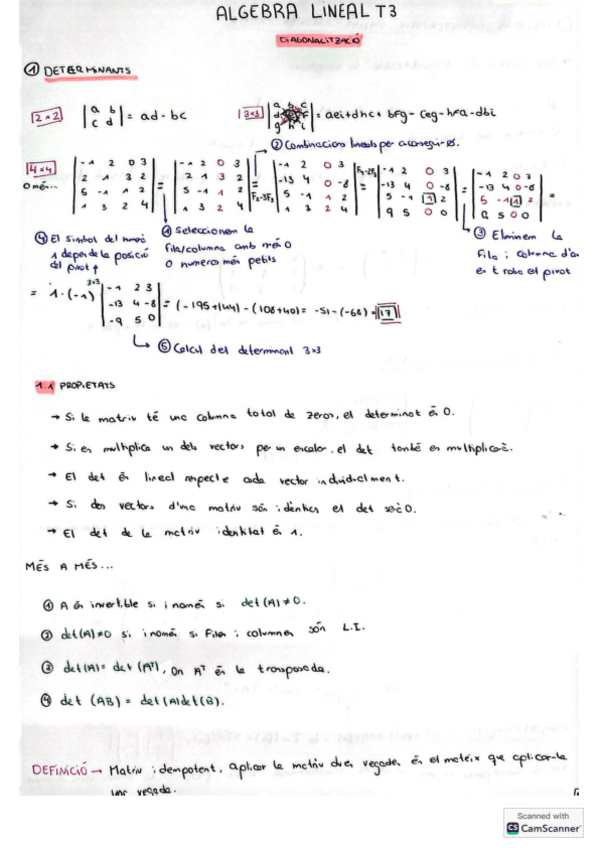 ALGEBRA LINEAL T3
DIAGONALITZACIÓ
① DETERMINANTS
2x2 | a b | = ad - bc
| c d |
3x3 | a b c |
| d e f | = aei + dhc + bfg - ceg - hfa - dbi
| g h i |
② Combinacions lineals per aconseguir 0s.
4x4
O més...
| -1 2 0 3 | = | -1 2 0 3 | = | -1 2 0 3 | = | -1 2 0 3 | = | -1 2 0 3 | =
| 2 1 3 2 | | 2 1 3 2 | F2-3F3 | -13 4 0 -8 | F4-2F3 | -13 4 0 -8 | | -13 4 0 -8 |
| 5 -1 1 2 | | 5 -1 1 2 | | 5 -1 1 2 | | 5 -1 1 2 | | 5 -1 1 2 |
| 1 3 2 4 | | 1 3 2 4 | | 1 3 2 4 | | -9 5 0 0 | | -9 5 0 0 |
④ El símbol del numero
1 depen de la posició
del pivot
① Seleccionem la
fila/columna amb més 0
o numeros més petits
③ Eliminem la
fila i columna d'on
es troba el pivot
= 1·(-1)
3+3
| -1 2 3 |
| -13 4 -8 | = (-195+144) - (-108+40) = -51-(-68) = 17
| -9 5 0 |
⑤ Calcul del determinant 3x3
1.1 PROPIETATS
→ Si la matriu té una columna total de zeros, el determinat és 0.
→ Si es multiplica un dels vectors per un escalar, el det també es multiplicarà.
→ El det és lineal respecte cada vector individualment.
→ Si dos vectors d'una matriu són idèntics el det serà 0.
→ El det de la matriu identitat és 1.
MÉS A MÉS...
① A és invertible si i només si det(A)≠0.
② det(A)≠0 si i només si files i columnes són L.I.
③ det(A) = det(Aᵀ), on Aᵀ és la transposada.
④ det (AB) = det(A)det(B).
DEFINICIÓ → Matriu idempotent, aplicar la matriu dues vegades, és el mateix que aplicar-la
una vegada.
Scanned with
CS CamScanner